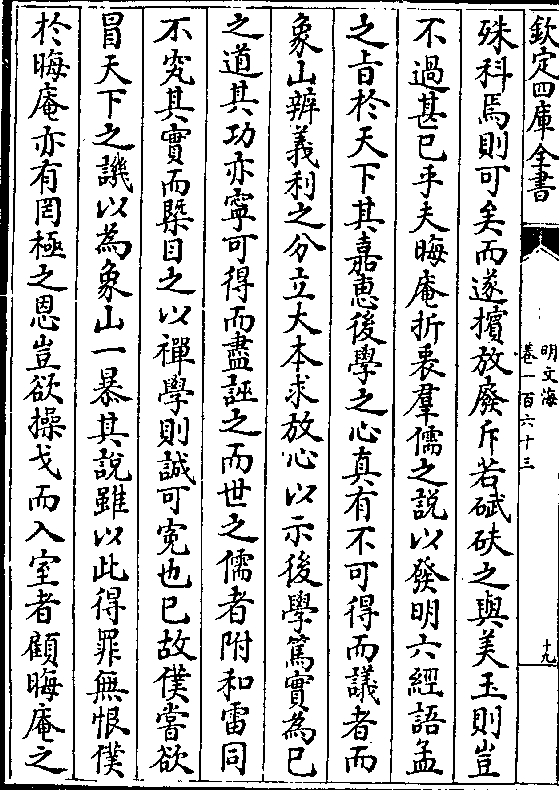 欽定四庫全書
明文海
卷一百六十三
十九
殊科焉則可矣而遂擯放廢斥若碔砆之與美玉則豈
不過甚已乎夫晦庵折衷羣儒之說以發明六經語孟
之旨於天下其嘉惠後學之心真有不可得而議者而
象山辨義利之分立大本求放心以示後學篤實為已
之道其功亦寧可得而盡誣之而世之儒者附和雷同
不究其實而槩目之以禪學則誠可寃也已故僕嘗欲
冒天下之譏以為象山一暴其說雖以此得罪無恨僕
於晦庵亦有罔極之恩豈欲操戈而入室者顧晦庵之